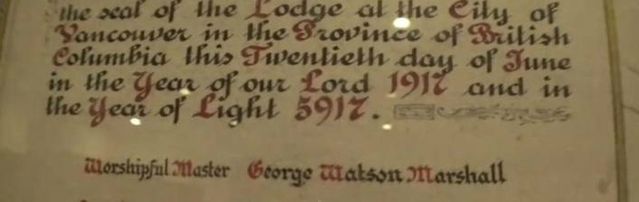 the seal of the Lodge at the City of
Vancouver in the Province of British
Columbia this Twentieth day of June
in the Year of our Lord 1917 and in
the Year of Light 5917.
Worshipful Master George Watson Marshall